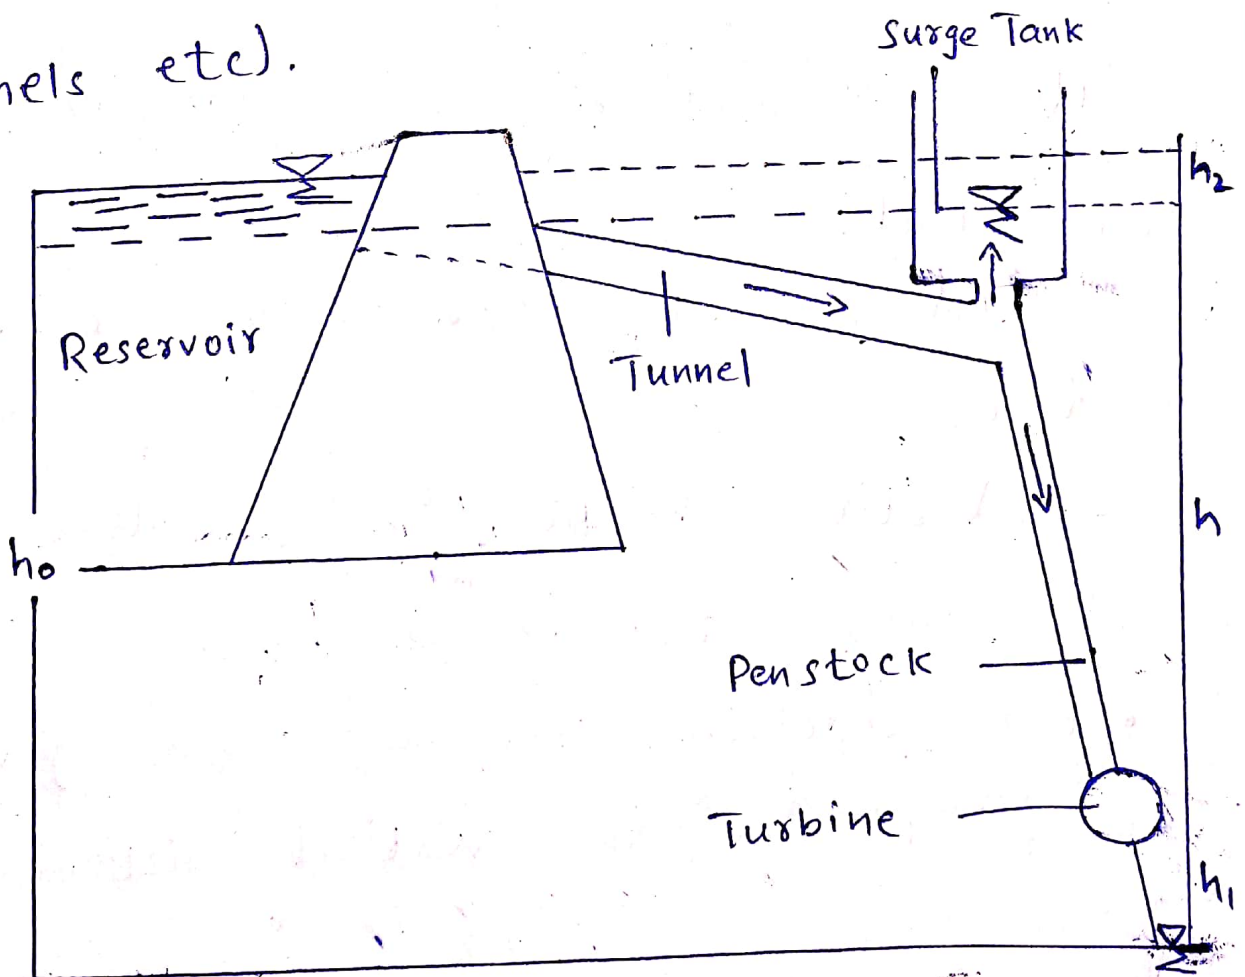 nels etc).
Surge Tank
h2
Reservoir
Tunnel
h
h0
Penstock
Turbine
h1